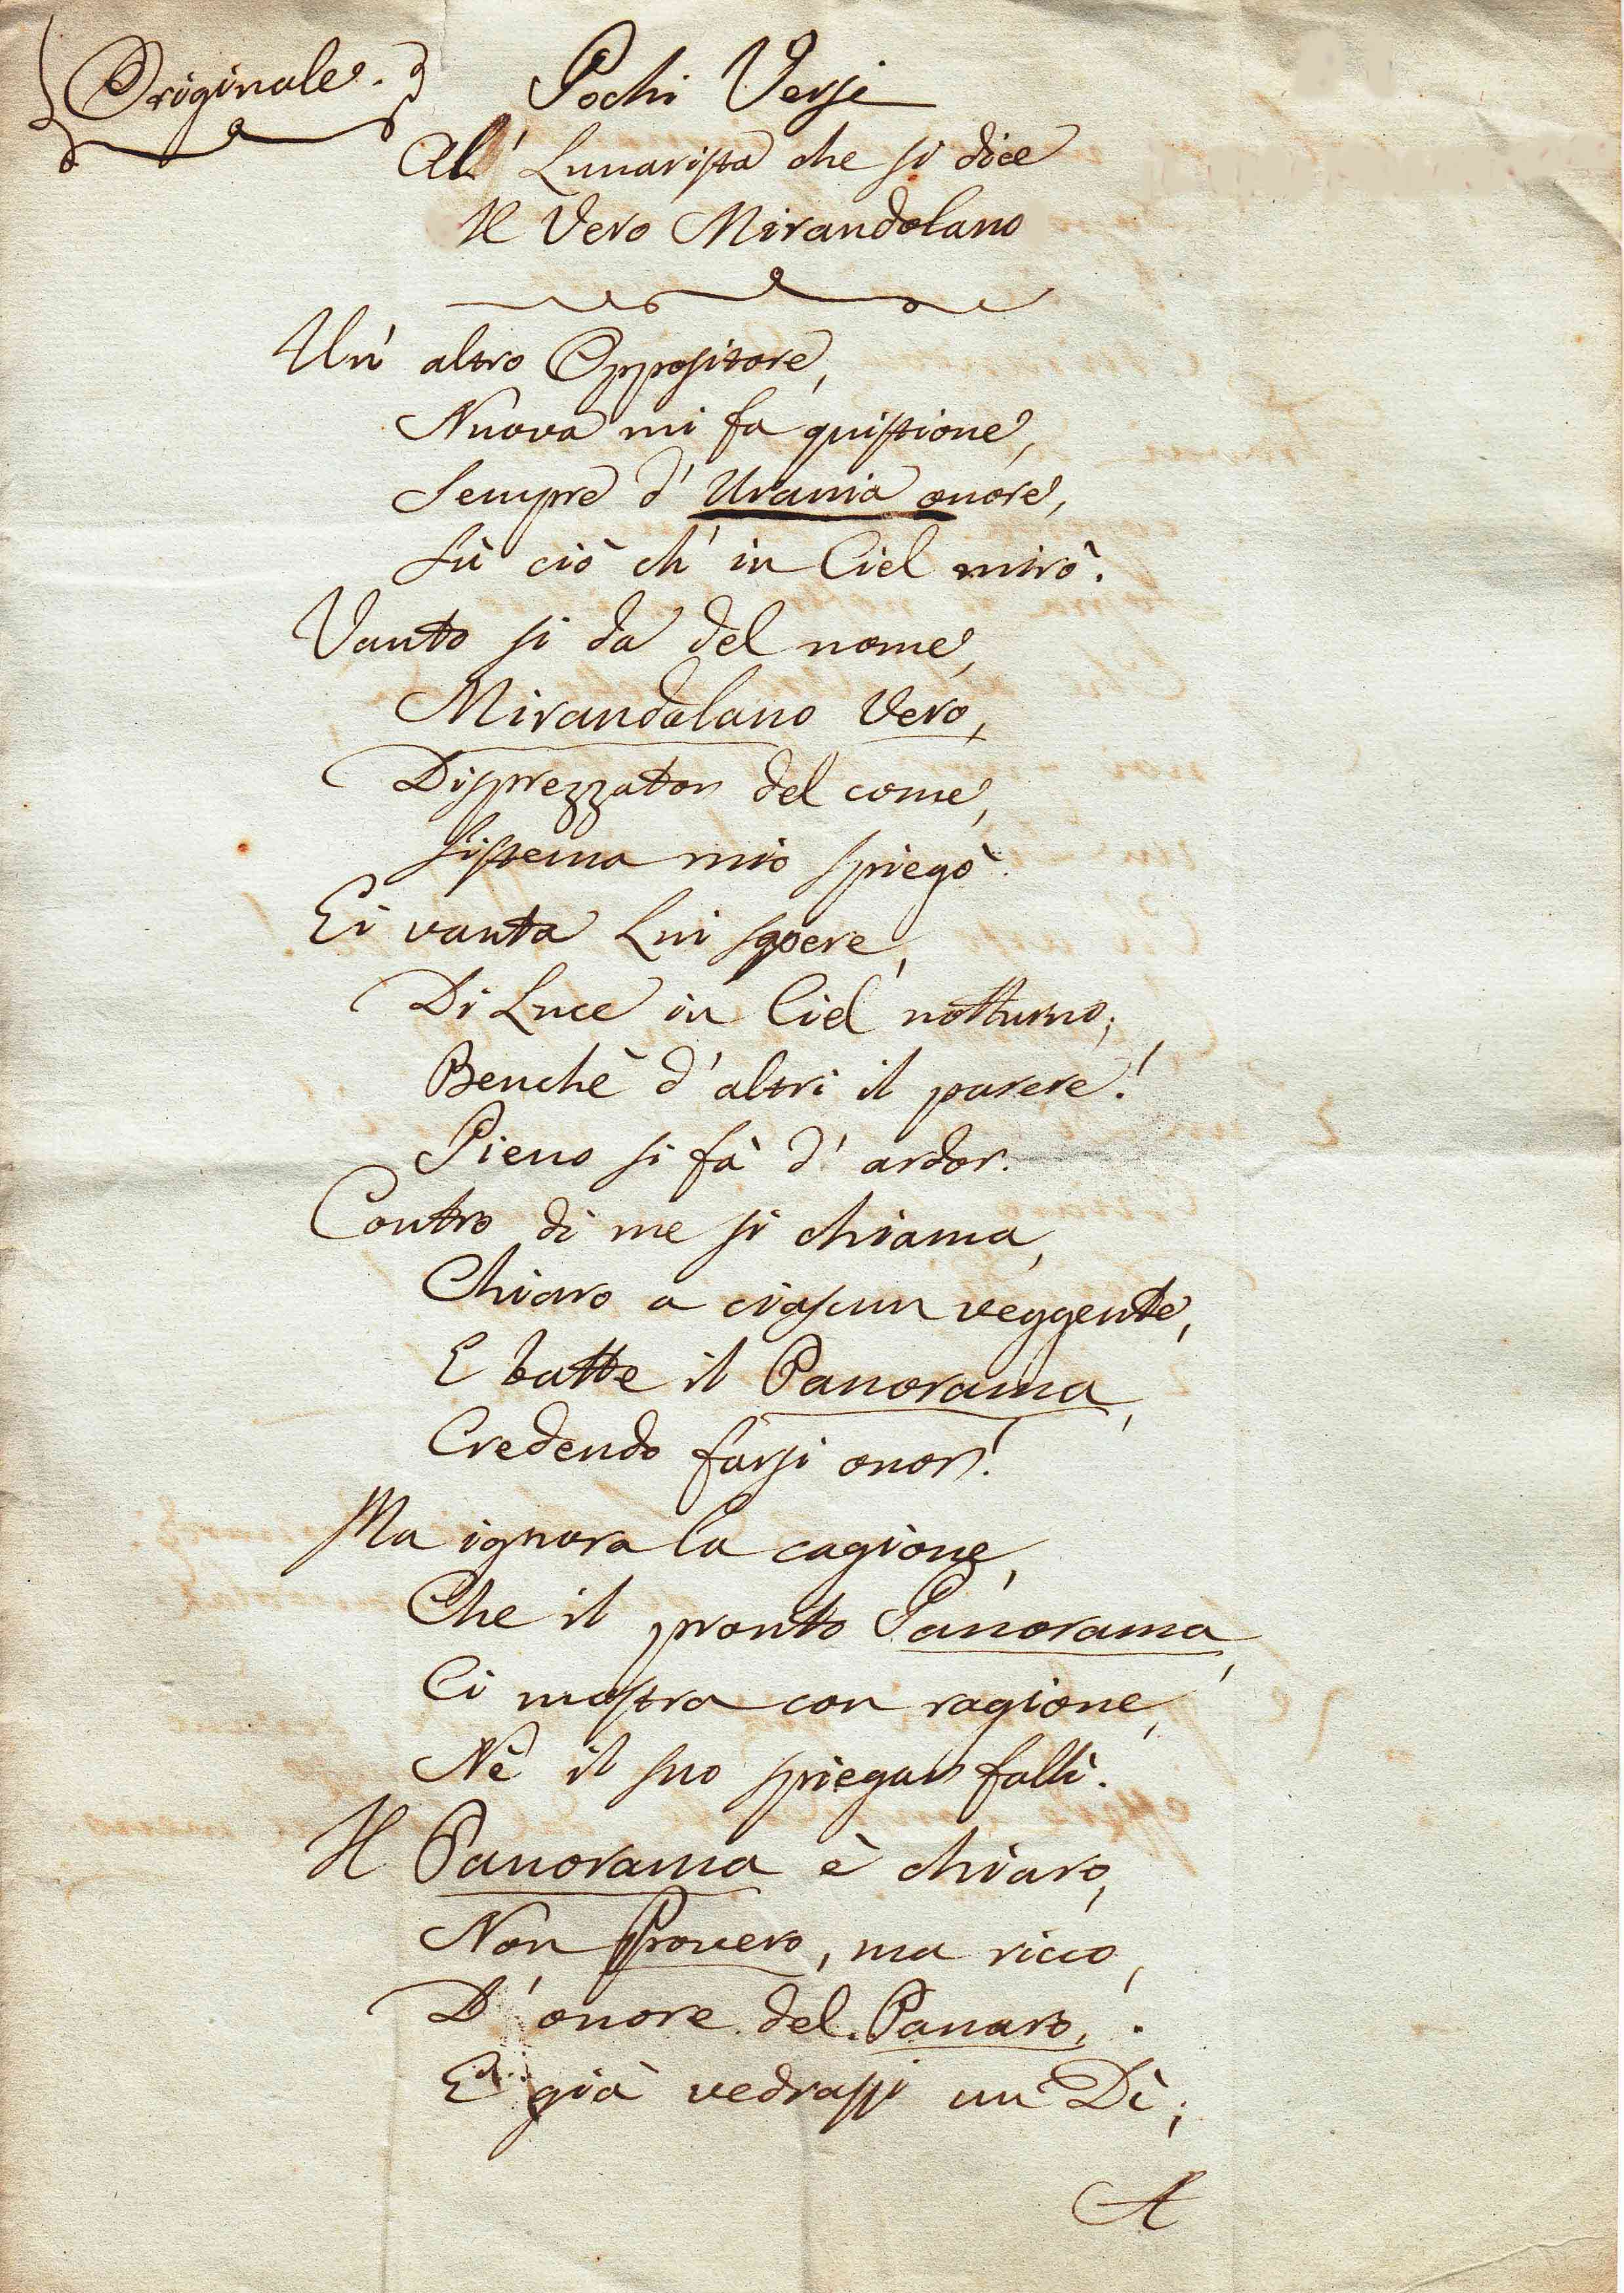 Originale.
Pochi Versi
Al' Lunarista che si dice
Il Vero Mirandolano
Un' altro Oppositore,
Nuova mi fa quistione,
Sempre d' Urania onore,
Sù ciò ch' in Ciel mirò.
Vanto si da del nome,
Mirandolano Vero,
Disprezzator del come,
Sistema mio spiegò.
Ei vanta Lui sapere,
Di Luce in Ciel notturno;
Benchè d' altri il parere!
Pieno si fà d' ardor.
Contro di me si chiama,
Chiaro a ciascun veggente,
E batte il Panorama,
Credendo farsi onor!
Ma ignora la cagione,
Che il pronto Panorama,
Ci mostra con ragione,
Nè il suo spiegar fallì.
Il Panorama è chiaro,
Non Provero, ma ricco,
D' onore del Panaro,
E già vedrassi un Dì;
A